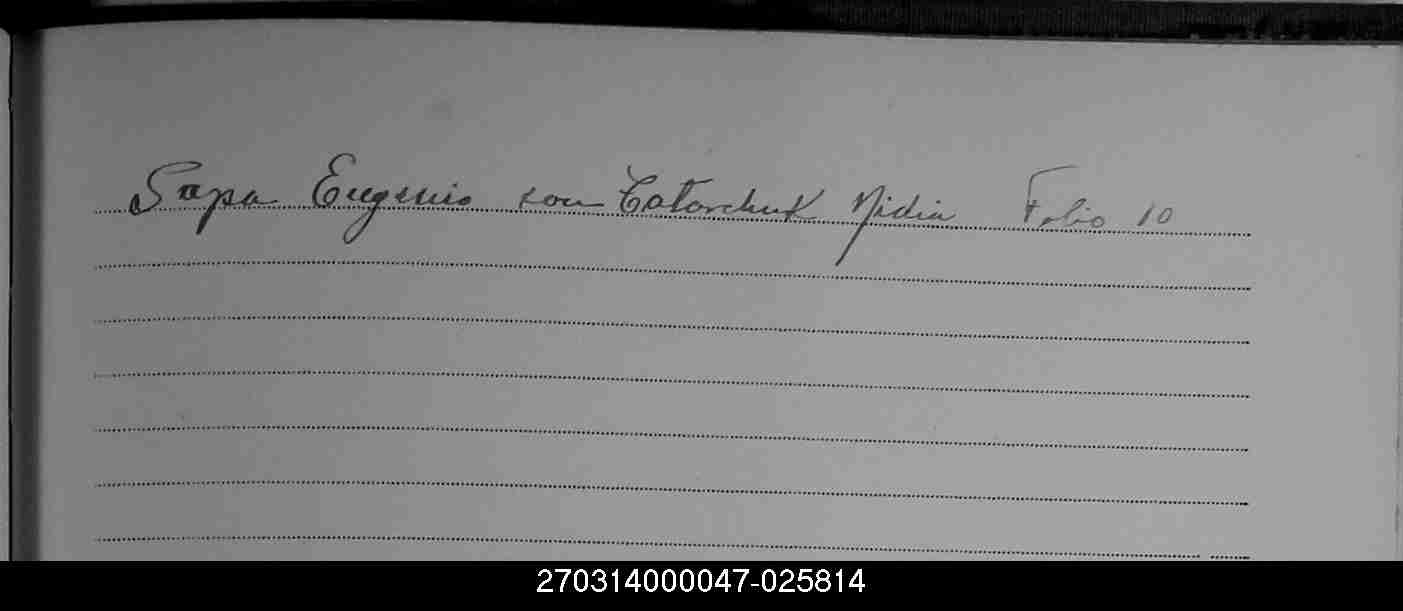 Sapa Eugenio con Catarchuk Nidia Folio 10
270314000047-025814